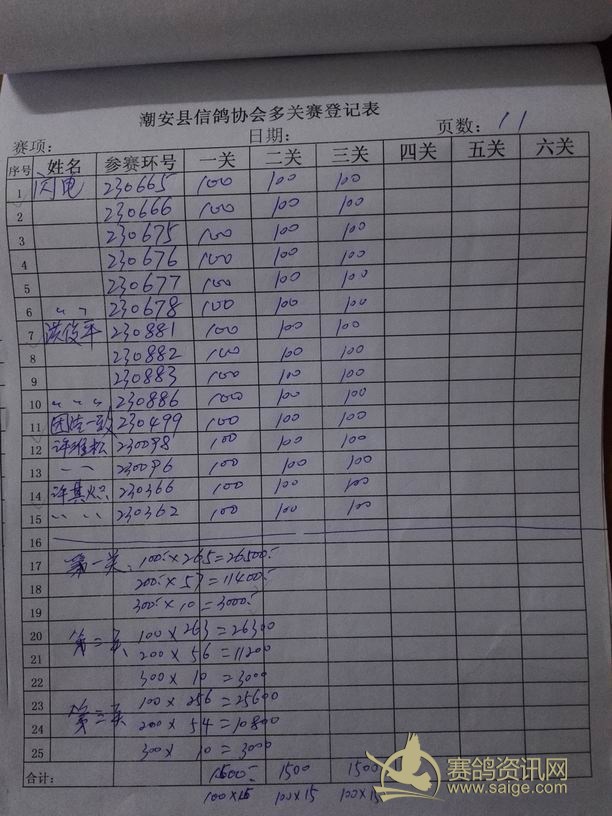 潮安县信鸽协会多关赛登记表
赛项: 日期: 页数: 11
序号 姓名 参赛环号 一关 二关 三关 四关 五关 六关
1 闪电 230665 100 100 100
2 230666 100 100 100
3 230675 100 100 100
4 230676 100 100 100
5 230677 100 100 100
6 〃 〃 230678 100 100 100
7 洪俊平 230881 100 100 100
8 230882 100 100 100
9 230883 100 100 100
10 〃 〃 〃 230886 100 100 100
11 团结一致 230499 100 100 100
12 许维松 230098 100 100 100
13 〃 〃 230096 100 100 100
14 许其 230366 100 100 100
15 〃 〃 〃 230362 100 100 100
16
17 第一关: 100×265=26500
18 200×57=11400
19 300×10=3000
20 第二关 100×263=26300
21 200×56=11200
22 300×10=3000
23 第三关 100×256=25600
24 200×54=10800
25 300×10=3000
合计: 1500 1500 1500
100×15 100×15 100×15
赛鸽资讯网
www.saige.com